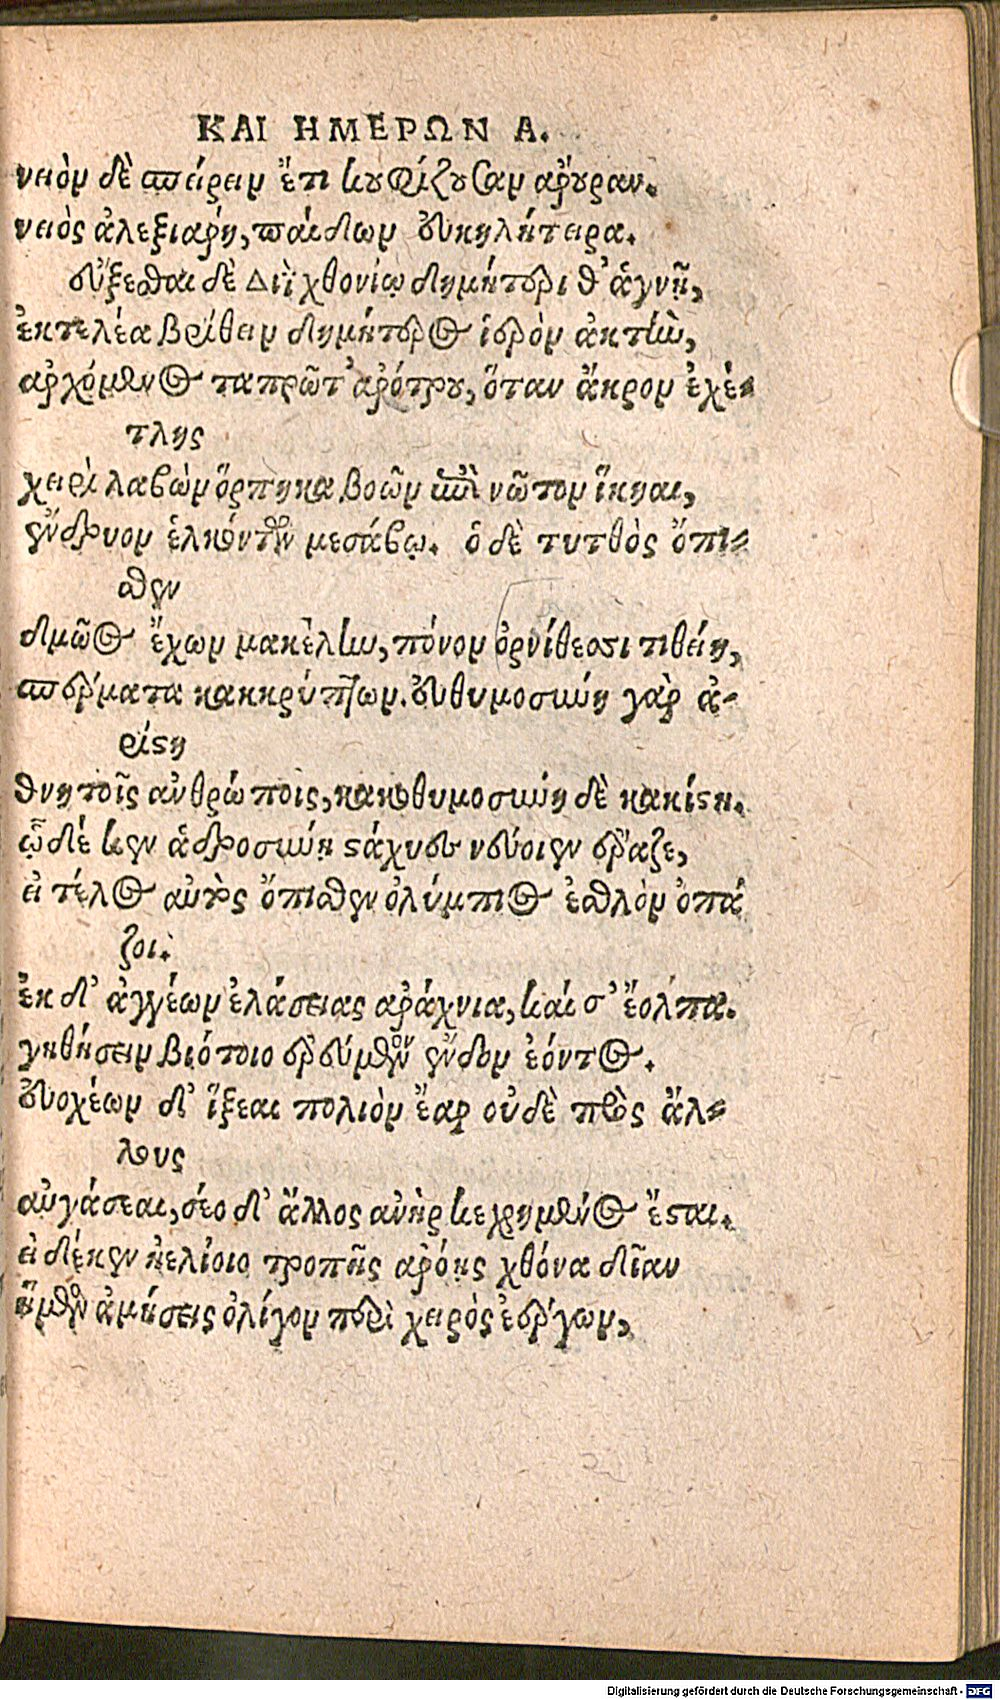 ΚΑΙ ΗΜΕΡΩΝ Α.
νειὸν δὲ σπείρειν ἔτι κουφίζουσαν ἄρουραν.
νειὸς ἀλεξιάρη, παίδων εὐκηλήτειρα.
εὔξεσθαι δὲ Διῒ χθονίῳ δημήτερι θ' ἁγνῇ,
ἐκτελέα βρίθειν δημήτερος ἱερὸν ἀκτὴν,
ἀρχόμενος ταπρῶτ' ἀρότρου, ὅταν ἄκρον ἐχέ-
τλης
χειρὶ λαβὼν ὅρπηκα βοῶν ἐπὶ νῶτον ἵκηαι,
ἔνδρυον ἑλκόντων μεσάβῳ. ὁ δὲ τυτθὸς ὄπι-
σθεν
δμῶος ἔχων μακέλην, πόνον ὀρνίθεσσι τιθείη,
σπέρματα κακκρύπτων. εὐθυμοσύνη γὰρ ἀ-
ρίστη
θνητοῖς ἀνθρώποις, κακοθυμοσύνη δὲ κακίστη.
ᾧδέ κεν ἁδροσύνῃ στάχυες νεύοιεν ἔραζε,
εἰ τέλος αὐτὸς ὄπισθεν ὀλύμπιος ἐσθλὸν ὀπά
ζοι.
ἐκ δ' ἀγγέων ἐλάσειας ἀράχνια, καί σ' ἔολπα.
γηθήσειν βιότοιο ἐρεύμενον ἔνδον ἐόντος.
εὐοχέων δ' ἵξεαι πολιὸν ἔαρ οὐδὲ πρὸς ἄλ-
λους
αὐγάσεαι, σέο δ' ἄλλος ἀνὴρ κεχρημένος ἔσται.
εἰ δέκεν ἠελίοιο τροπῇς ἀρόῃς χθόνα δῖαν
ἥμενος ἀμήσεις ὀλίγον περὶ χειρὸς ἐέργων,
Digitalisierung gefördert durch die Deutsche Forschungsgemeinschaft - DFG